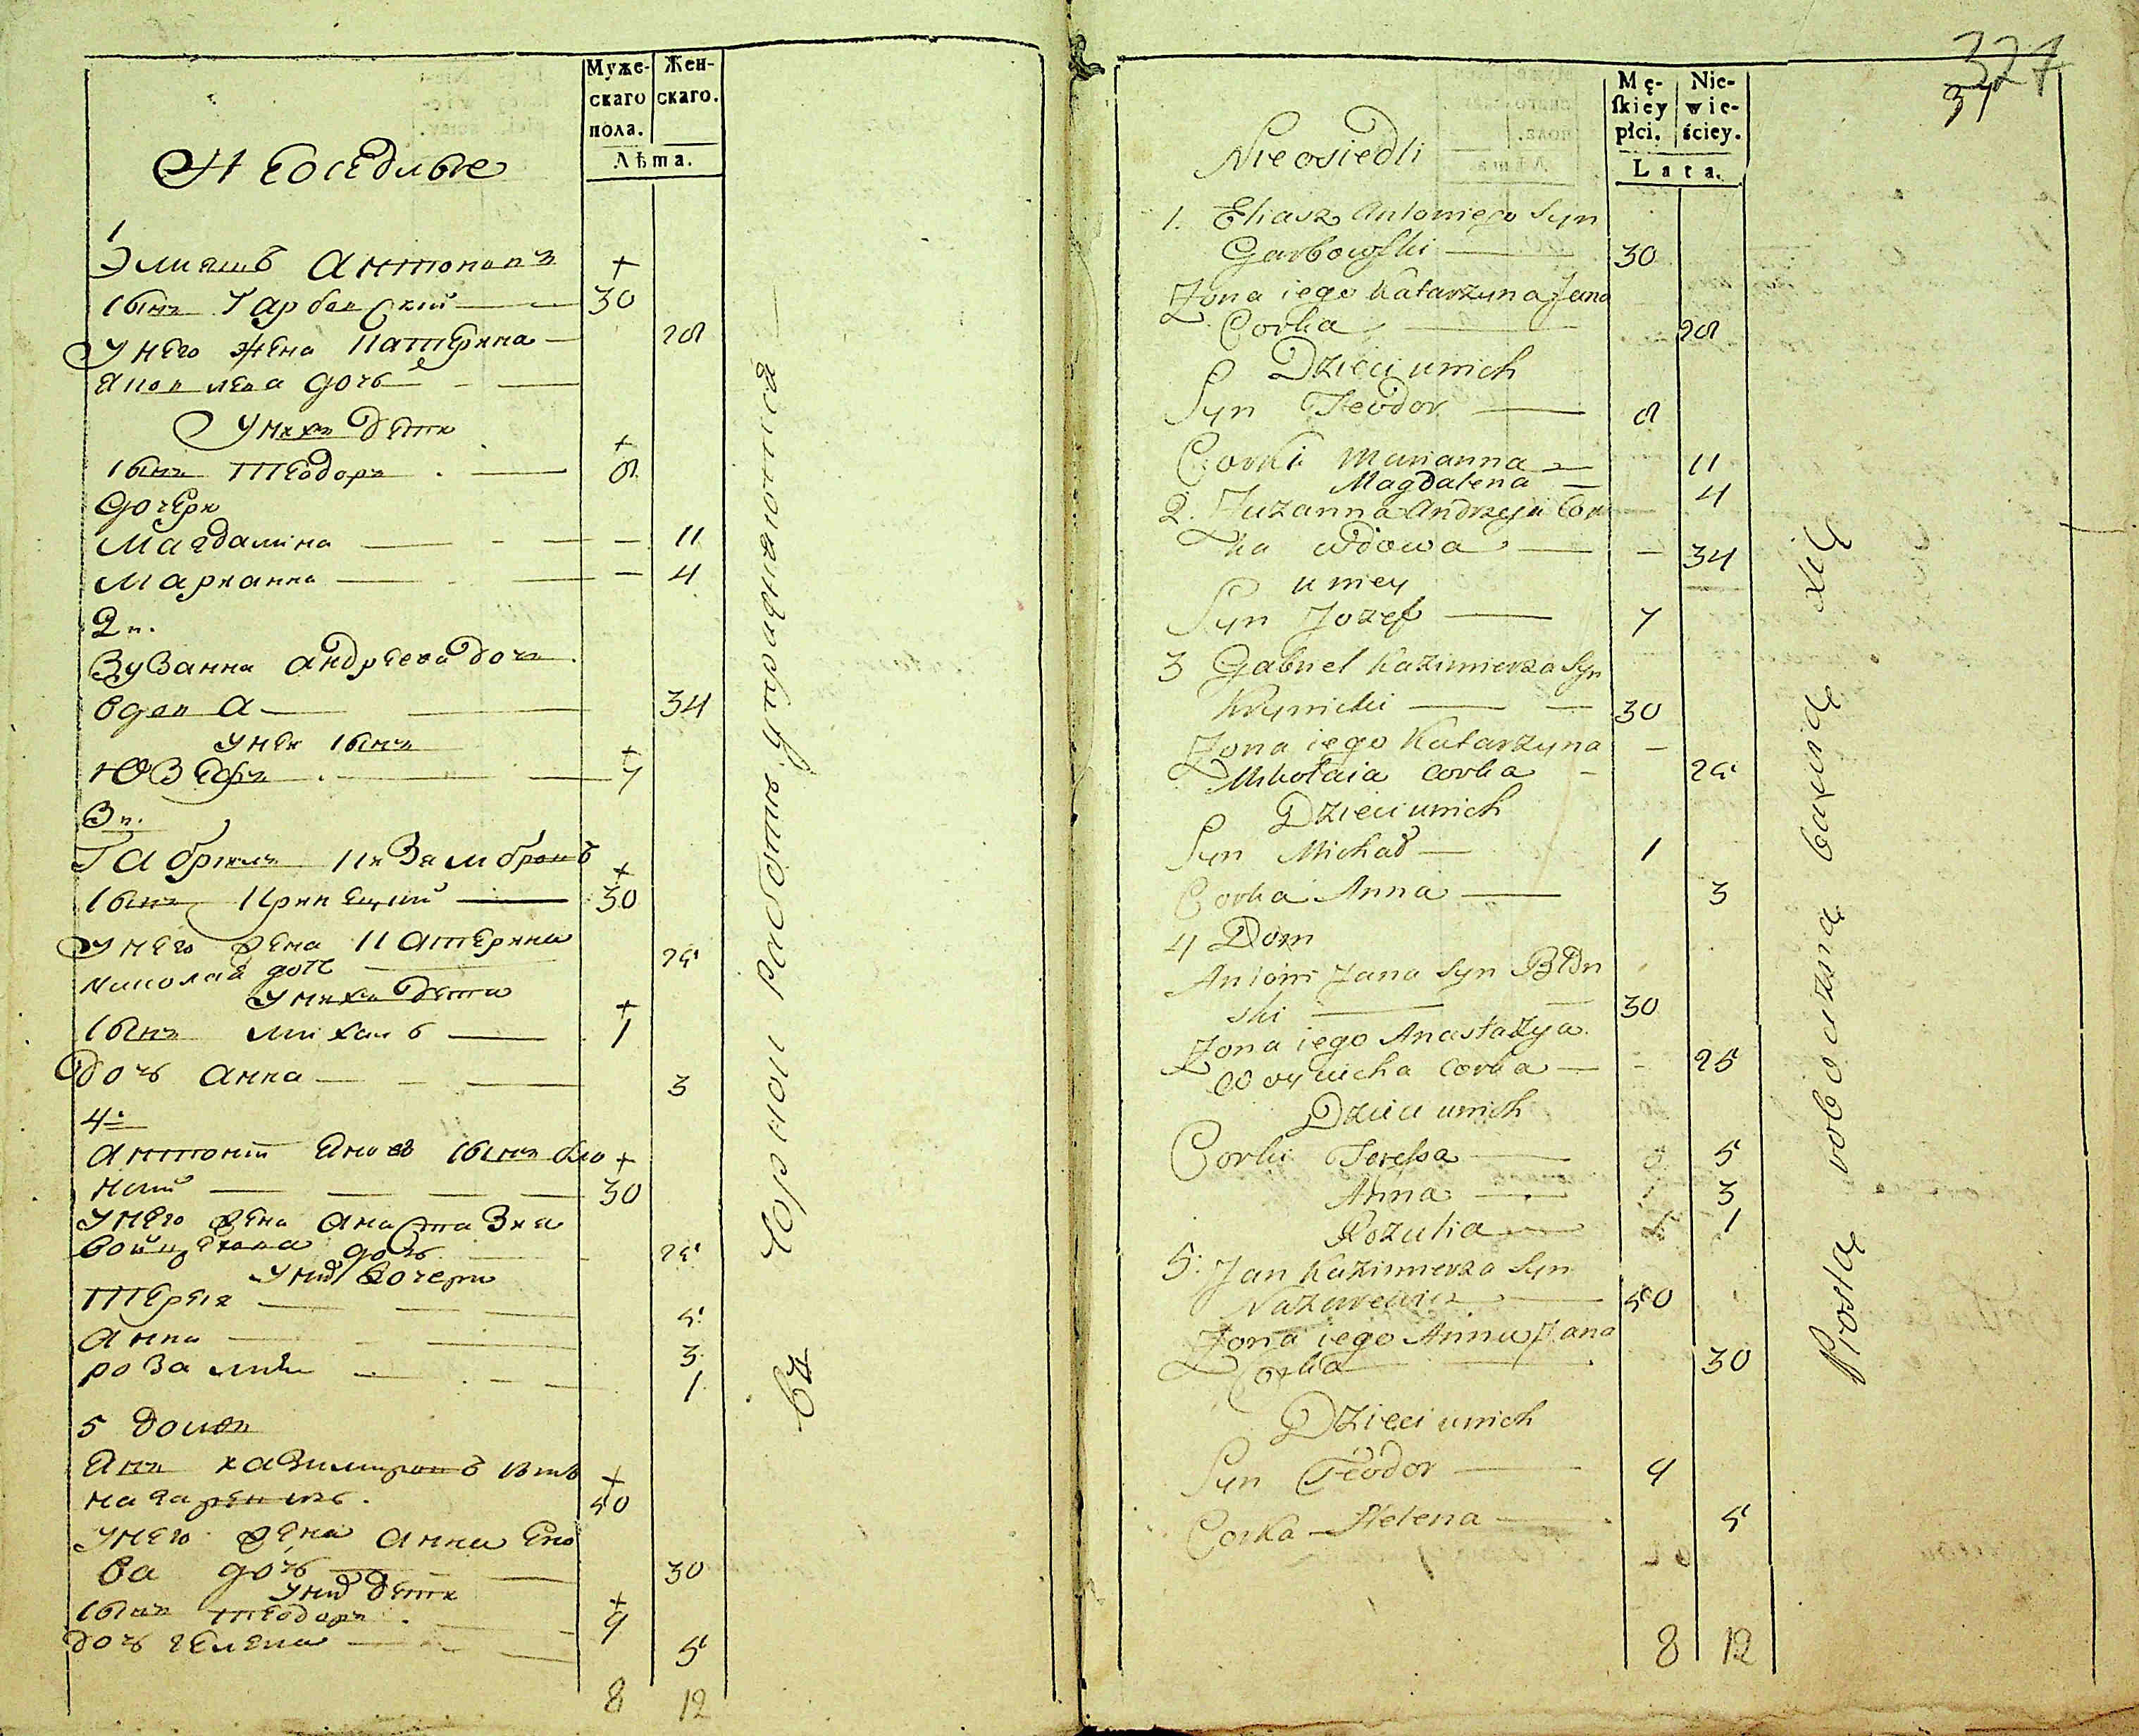 Муже-
скаго
пола.
Жен-
скаго.
Лѣта.
Неоседлые
1
Элиашъ Антоновъ
сынъ Гарбовский 30
У него жена Катерина 28
Яновлева дочь
У нихъ дети
сынъ Теодоръ 8
Дочери
Магдалина 11
Марианна 4
2й.
Зузанна Андреева дочь
вдова 34
У неи сынъ
Юзефъ 7
3й.
Габриель Казимировъ
сынъ 30
У него жена Катерина 25
Николая дочь
У нихъ дети
сынъ Михалъ 1
дочь Анна 3
4й
Антоний Яновъ сынъ Бло
ний 30
У него жена Анастазия
Войцехова дочь 25
У них дочери
Тереса 5
Анна 3
Розалия 1
5 домъ
Янъ Казимировъ сынъ
Назаревичь. 50
У него жена Анна Яно
ва дочь 30
У них дети
сынъ Теодоръ 9
дочь Гелена 5
8 12
въ Чорной работе упражняются
327
31
Mę-
skiey
płci.
Nie-
wie-
ściey.
Lata.
Nieosiedli
1. Eliasz Antoniego Syn
Garbowski 30
Zona iego Katarzyna Jana
Corka 28
Dzieci unich
Syn Teodor 8
Corki Marianna 11
Magdalena 4
2. Zuzanna Andrzeja Cor
ka wdowa 34
u niey
Syn Jozef 7
3 Gabriel Kazimierza Syn
Krynicki 30
Zona iego Katarzyna
Mikołaia Corka 25
Dzieci unich
Syn Michał 1
Corka Anna 3
4 Dom
Antoni Jana Syn Błon
ski 30
Zona iego Anastazya
Woycicha Corka 25
Dzieci unich
Corki Teressa 5
Anna 3
Rozalia 1
5. Jan Kazimierza Syn
Nazarewicz 50
Zona iego Anna Jana
Corka 30
Dzieci unich
Syn Teodor 9
Corka Helena 5
8 12
Prostą robocizną bawią się